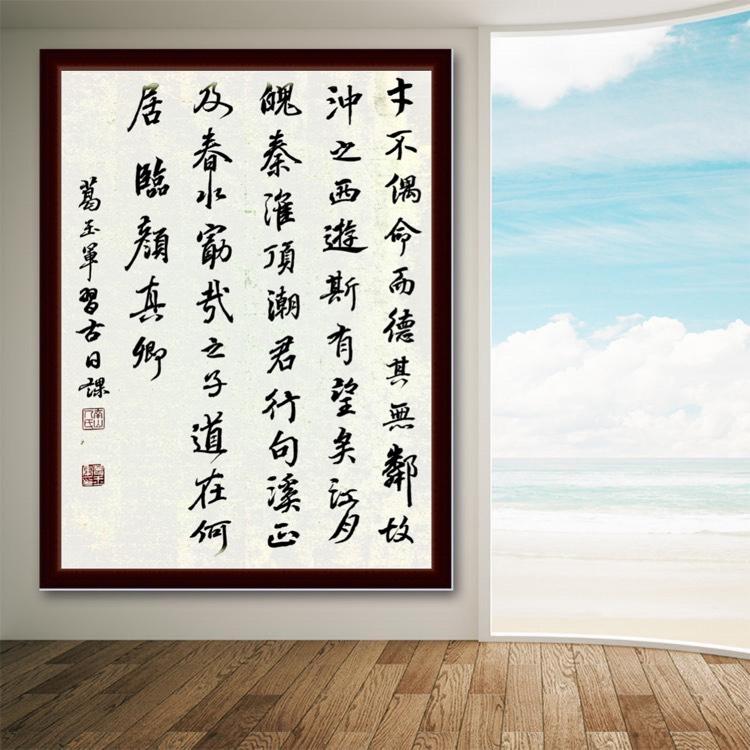 才不偶命而德其無鄰故
沖之西遊斯有望矣江月
魄秦淮頂潮君行句溪正
及春水勗哉之子道在何
居臨顏真卿
葛玉軍習古日課
南山人氏